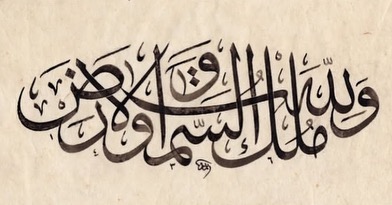 وَلِلّٰهِ مُلْكُ السَّمٰوَاتِ وَالْاَرْضِ